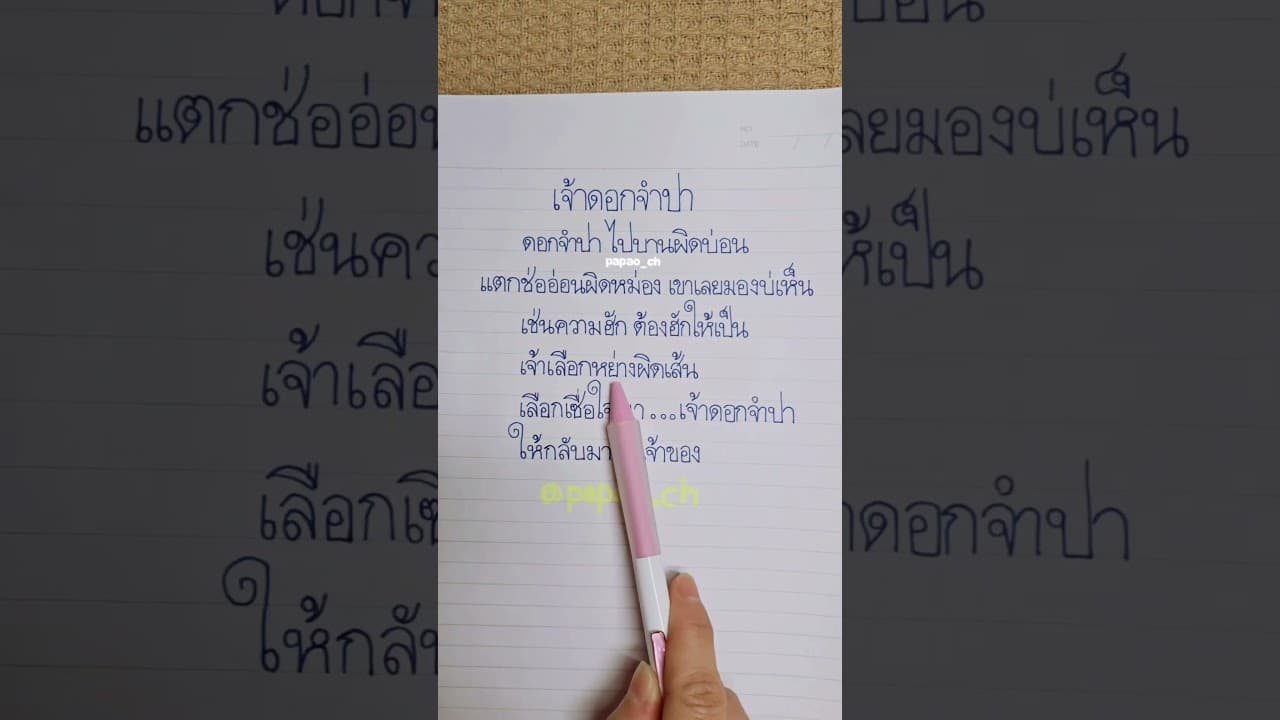 เจ้าดอกจำปา
ดอกจำปา ไปบานผิดบ่อน
papao_ch
แตกช่ออ่อนผิดหม่อง เขาเลยมองบ่เห็น
เช่นความฮัก ต้องฮักให้เป็น
เจ้าเลือกหย่างผิดเส้น
เลือกเชื่อ ...เจ้าดอกจำปา
ให้กลับมา เจ้าของ
@papao_ch